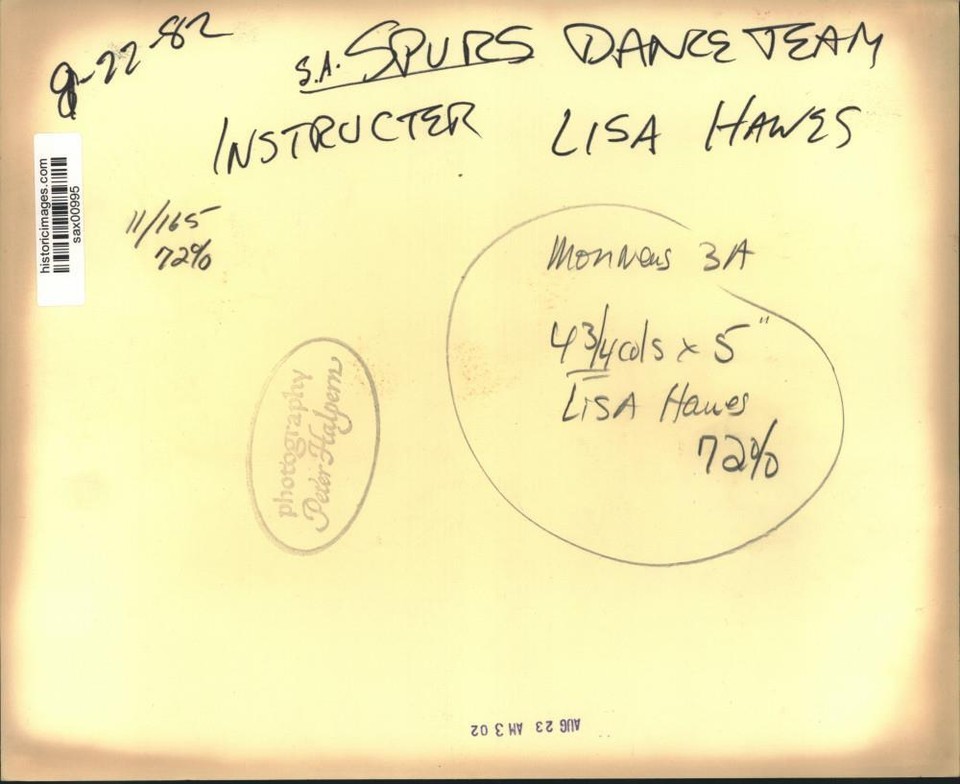 8-22-82
S.A. SPURS DANCE TEAM
INSTRUCTER LISA HAWES
historicimages.com
sax00995
11/165
72%
3A
4 3/4 cols x 5"
LISA Hawes
72%
photography
Peter Halpern
AUG 23 AM 3 02